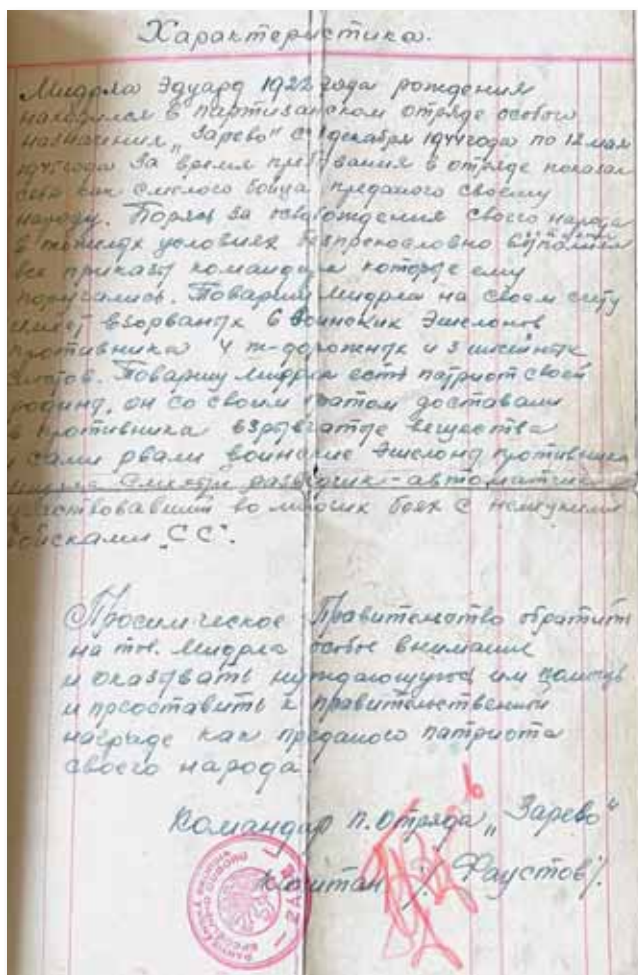 Характеристика.
Мидрла Эдуард 1922 года рождения
находился в партизанском отряде особого
назначения „Зарево“ с 1 декабря 1944 года по 12 мая
1945 года За время пребывания в отряде показал
себя как смелого бойца преданого своему
народу. Борясь за освобождения своего народа
в условиях безпрекословно выполнял
все приказы командира которые ему
поручались. Товарищ Мидрла на своем счету
имеет взорваных 6 воинских эшелонов
противника 4 ж-дорожных и 3
мостов. Товарищ Мидрла есть патриот своей
родины, он со своим братом доставали
у противника взрывчатые вещества
и сами рвали воинские эшелоны противника
разведчик-автоматчик
участвовавший во многих боях с немецкими
войсками „СС“.
Просим Чешское Правительство обратить
на тов. Мидрла особое внимание
и оказывать нуждающуюся им помощь
и предоставить к правительственной
награде как преданого патриота
своего народа.
Командир п. отряда „Зарево“
Капитан /Фаустов/.